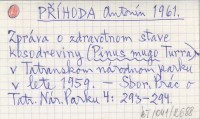 PŘÍHODA Antonín 1961.
Zpráva o zdravotnom stave
kosodreviny (Pinus mugo Turra)
v Tatranskom národnom parku
v lete 1959. – Sbor. Prác o
Tatr. Nár. Parku 4: 293-294.